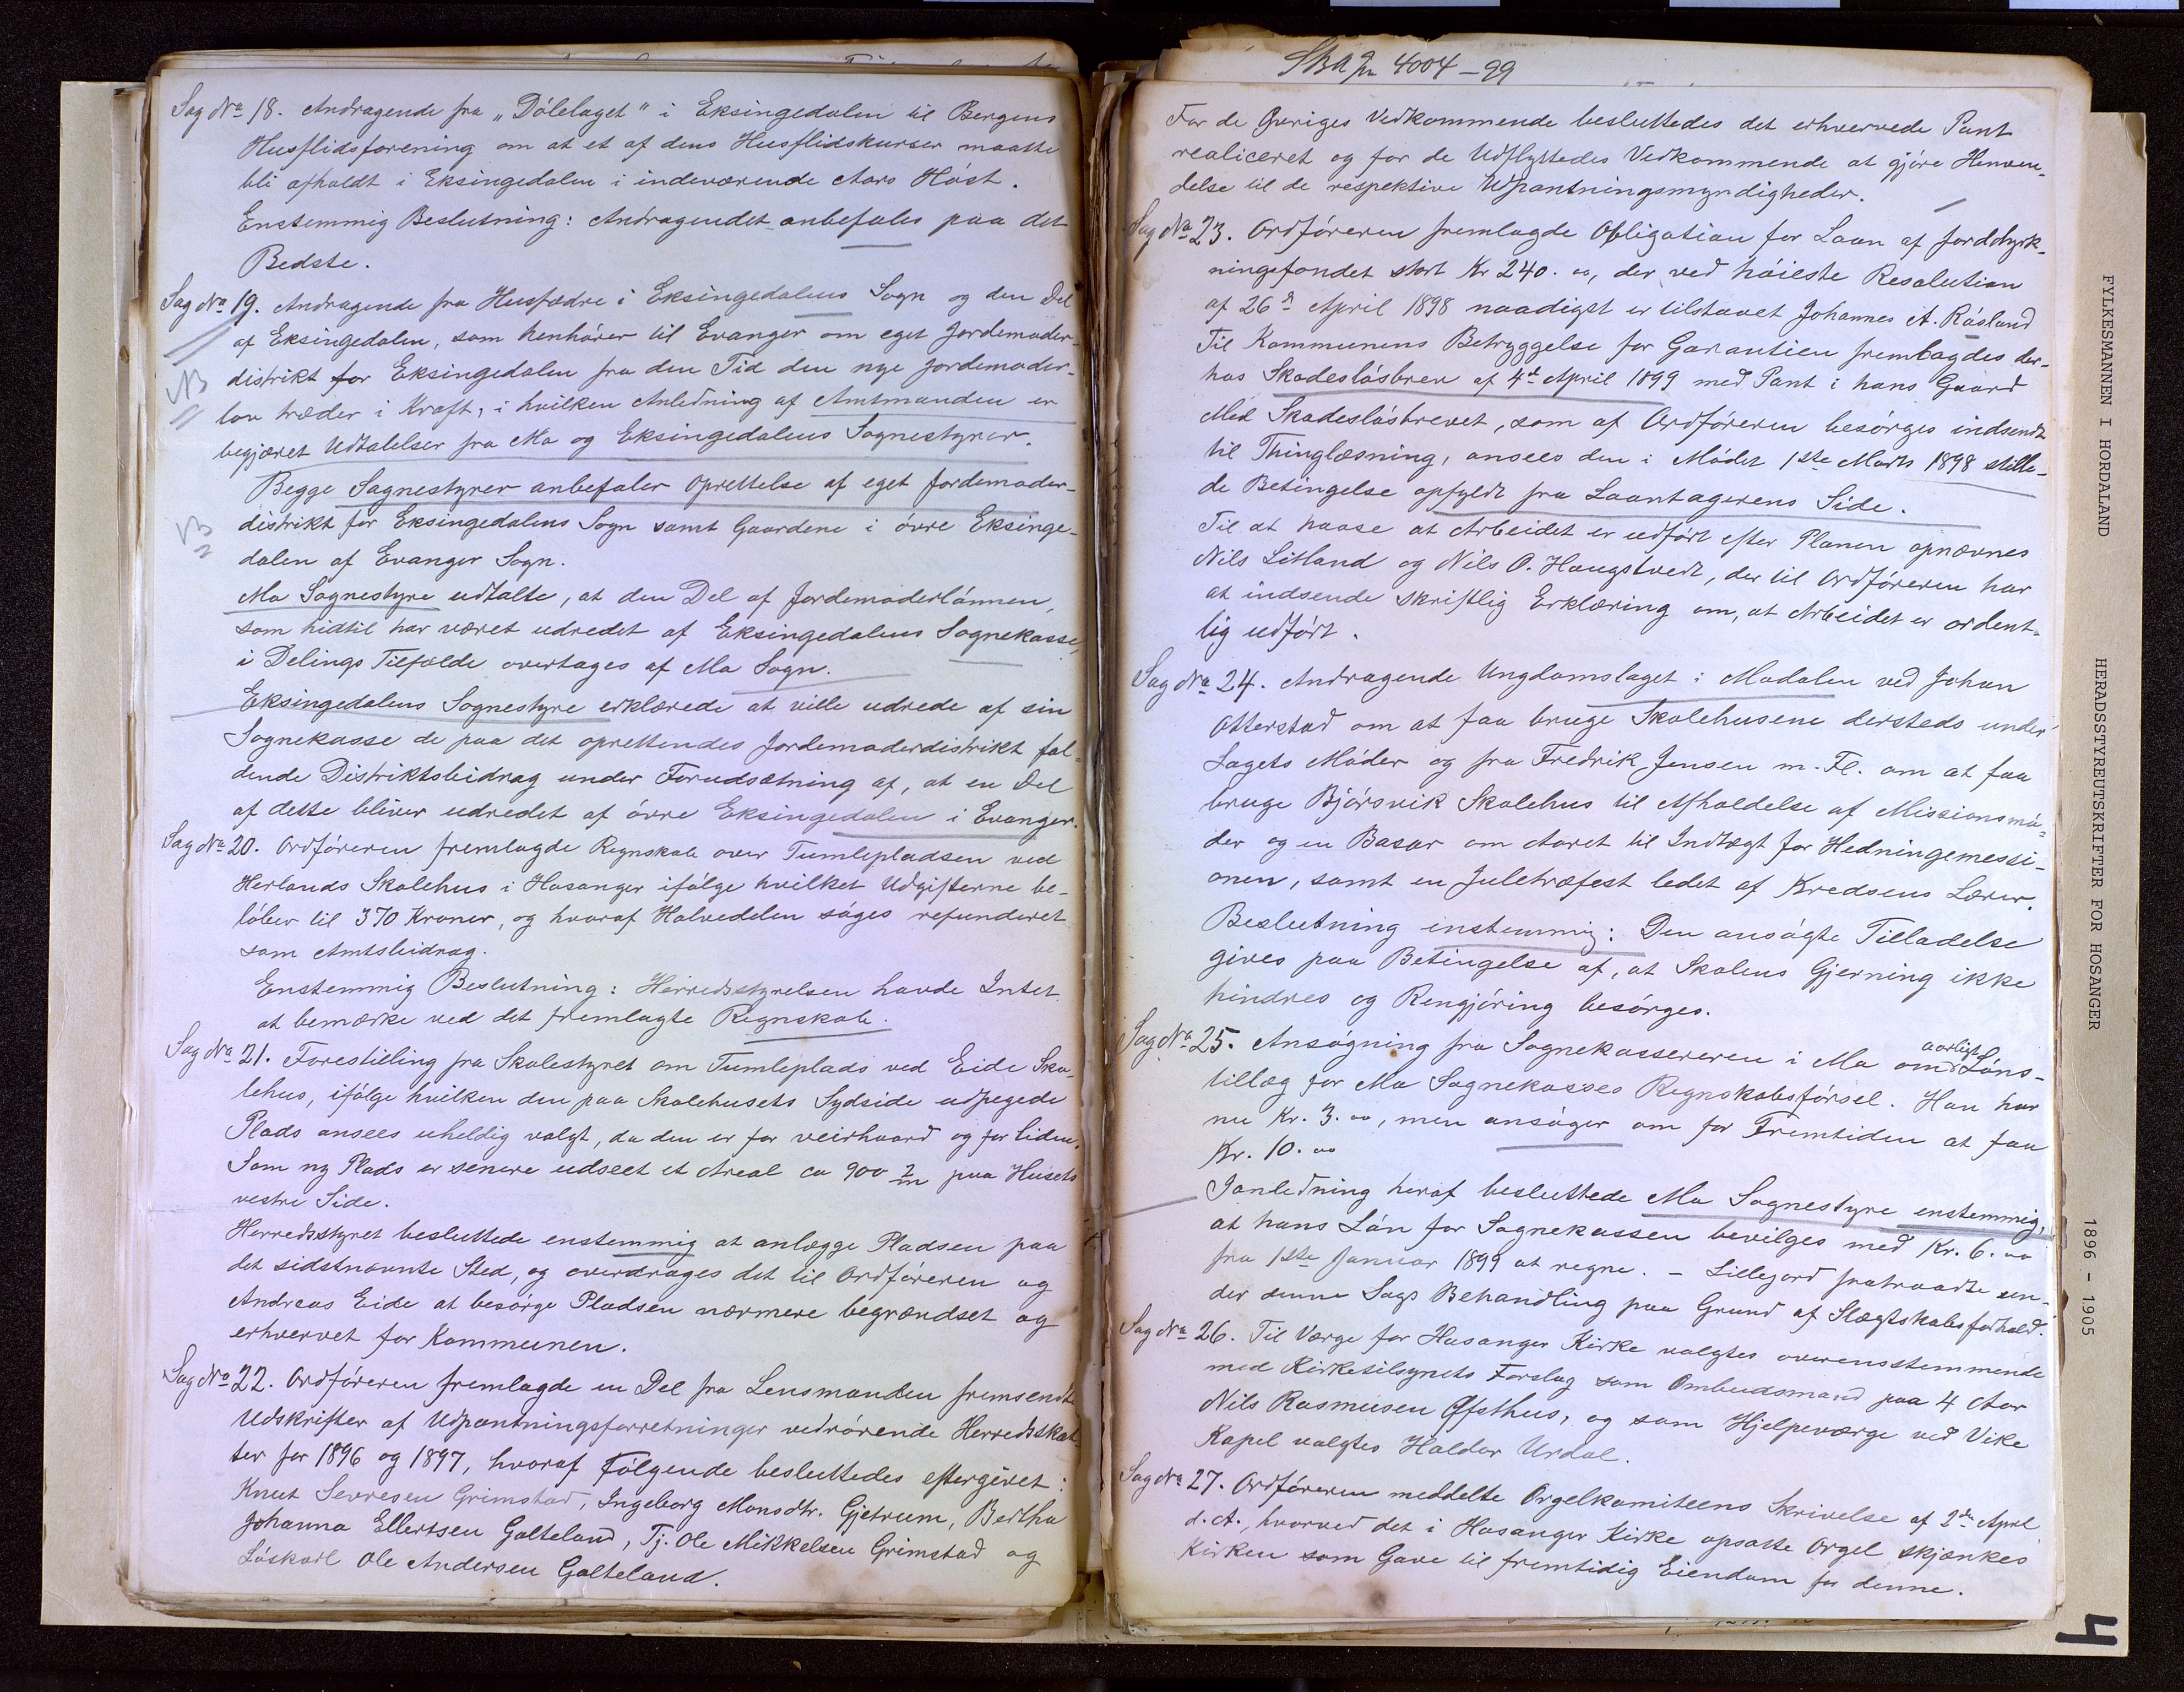 Sag No 18. Andragende fra „Dölelaget" i Eksingedalen til Bergens
Husflidsforening om at et af dens Husflidskurser maatte
bli afholdt i Eksingedalen i indeværende Aars Höst.
Enstemmig Beslutning: Andragendet anbefales paa det
Bedste.
Sag No 19. Andragende fra Husfædre i Eksingedalens Sogn og den Del
af Eksingedalen, som henhörer til Evanger om eget Jordemoder-
distrikt for Eksingedalen fra den Tid den nye Jordemoder-
NB
lov træder i Kraft, i hvilken Anledning af Amtmanden er
begjæret Udtalelser fra Mo og Eksingedalens Sognestyrer.
Begge Sognestyrer anbefaler Oprettelse af eget Jordemoder-
distrikt for Eksingedalens Sogn samt Gaardene i övre Eksinge-
NB
dalen af Evanger Sogn.
Mo Sognestyre udtalte, at den Del af Jordemoderlönnen,
som hidtil har været udredet af Eksingedalens Sognekasse,
i Delings Tilfælde overtages af Mo Sogn.
Eksingedalens Sognestyre erklærede at ville udrede af sin
Sognekasse de paa det oprettendes Jordemoderdistrikt fal-
dende Distriktsbidrag under Forudsætning af, at en Del
af dette bliver udredet af övre Eksingedalen i Evanger.
Sag No 20. Ordföreren fremlagde Regnskab over Tumlepladsen ved
Herlands Skolehus i Hosanger ifölge hvilket Udgifterne be-
löber til 370 Kroner, og hvoraf Halvedelen söges refunderet
som Amtsbidrag.
Enstemmig Beslutning: Herredsstyrelsen havde Intet
at bemærke ved det fremlagte Regnskab.
Sag No 21. Forestilling fra Skolestyret om Tumleplads ved Eide Sko-
lehus, ifölge hvilken den paa Skolehusets Sydside udpegede
Plads ansees uheldig valgt, da den er for veirhaard og for liden.
Som ny Plads er senere udseet et Areal ca 900 m2 paa Husets
vestre Side.
Herredsstyret besluttede enstemmig at anlægge Pladsen paa
det sidstnævnte Sted, og overdrages det til Ordföreren og
Andreas Eide at besörge Pladsen nærmere begrændset og
erhvervet for Kommunen.
Sag No 22. Ordföreren fremlagde en Del fra Lensmanden fremsendte
Udskrifter af Udpantningsforretninger vedrörende Herredsskat-
ter for 1896 og 1897, hvoraf Fölgende besluttedes eftergivet:
Knut Sevresen Grimstad, Ingeborg Monsdtr. Gjetrum, Bertha
Johanna Ellertsen Galteland, Tj. Ole Mikkelsen Grimstad og
Löskarl Ole Andersen Galteland.
4004-99
For de Övriges Vedkommende besluttedes det erhvervede Pant
realiceret og for de Udflyttedes Vedkommende at gjöre Henven-
delse til de respektive Udpantningsmyndigheder.
Sag No 23. Ordföreren fremlagde Obligation for Laan af Jorddyrk-
ningsfondet stort Kr 240.00, der ved höieste Resolution
af 26de April 1898 naadigst er tilstaaet Johannes A. Räsland
Til Kommunens Betryggelse for Garantien fremlagdes der-
hos Skadeslösbrev af 4de April 1899 med Pant i hans Gaard
Med Skadeslösbrevet, som af Ordföreren besörges indsendt
til Thinglæsning, ansees den i Mödet 1ste Marts 1898 stille-
de Betingelse opfyldt fra Laantagerens Side.
Til at paase at Arbeidet er udfört efter Planen opnævnes
Nils Litland og Nils O. Haugstvedt, der til Ordföreren har
at indsende skriftlig Erklæring om, at Arbeidet er ordent-
lig udfört.
Sag No 24. Andragende Ungdomslaget i Modalen ved Johan
Otterstad om at faa bruge Skolehusene dersteds under
Lagets Möder og fra Fredrik Jensen m. Fl. om at faa
bruge Bjórsvik Skolehus til Afholdelse af Missionsmö-
der og en Basar om Aaret til Indtægt for Hedningemessi-
onen, samt en Juletræfest ledet af Kredsens Lærer.
Beslutning enstemmig: Den ansögte Tilladelse
gives paa Betingelse af, at Skolens Gjerning ikke
hindres og Rengjöring besörges.
Sag No 25. Ansögning fra Sognekassereren i Mo om aarligt Löns-
tillæg for Mo Sognekasses Regnskabsförsel. Han har
nu Kr. 3.00, men ansöger om for Fremtiden at faa
Kr. 10.00
Ianledning heraf besluttede Mo Sognestyre enstemmig,
at hans Lön for Sognekassen bevilges med Kr. 6.00
fra 1ste Januar 1899 at regne. – Lillejord fratraadte un-
der denne Sags Behandling paa Grund af Slægtskabsforhold.
Sag No 26. Til Værge for Hosanger Kirke valgtes overensstemmende
med Kirketilsynets Forslag som Ombudsmand paa 4 Aar
Nils Rasmusen Øfsthus, og som Hjelpeværge ved Vike
Kapel valgtes Haldor Urdal.
Sag No 27. Ordföreren meddelte Orgelkomiteens Skrivelse af 2de April
d. A., hvorved det i Hosanger Kirke opsatte Orgel skjænkes
Kirken som Gave til fremtidig Eiendom for denne.
FYLKESMANNEN I HORDALAND
HERADSSTYREUTSKRIFTER FOR HOSANGER
1896 - 1905
4